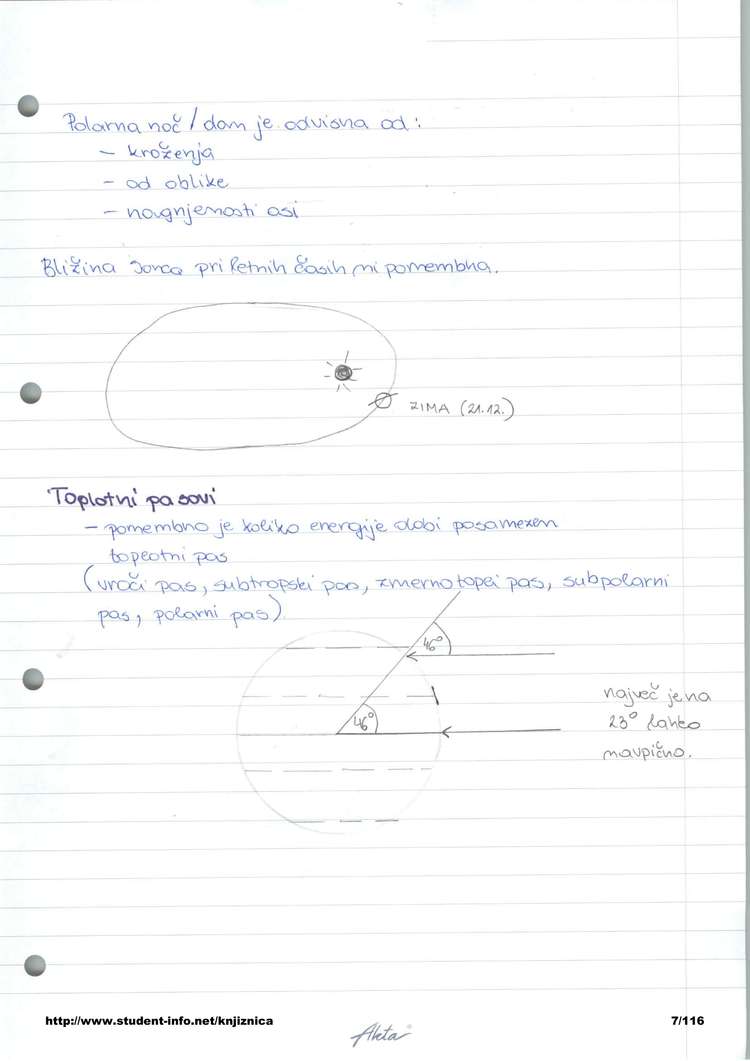 Polarna noč / dan je odvisna od:
- kroženja
- od oblike
- nagnjenosti osi
Bližina Sonca pri letnih časih ni pomembna.
ZIMA (21.12.)
Toplotni pasovi
- pomembno je koliko energije dobi posamezen
toplotni pas
(vroči pas, subtropski pas, zmernotopli pas, subpolarni
pas, polarni pas)
46°
največ je na
46°
23° lahko
navpično.
http://www.student-info.net/knjiznica
7/116
Akta